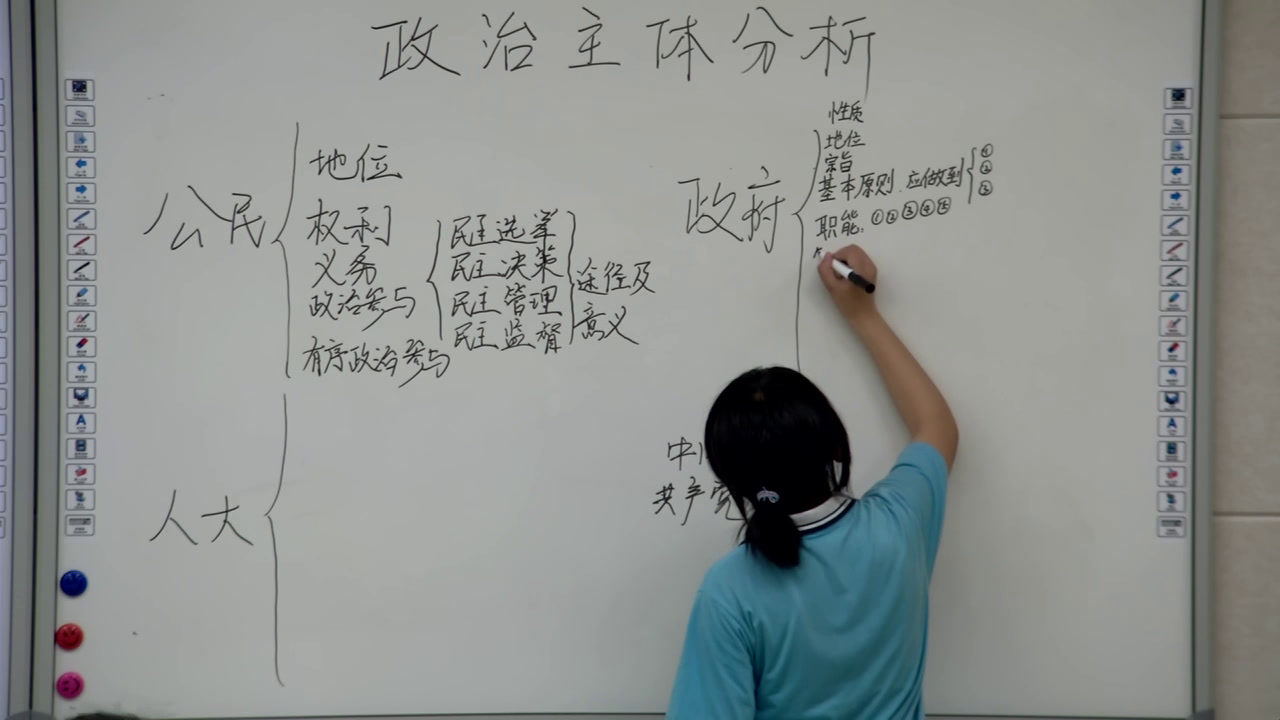 政治主体分析
公民
地位
权利
义务
政治参与
有序政治参与
民主选举
民主决策
民主管理
民主监督
途径及
意义
政府
性质
地位
宗旨
基本原则.应做到
①
②
③
职能:①②③④⑤
人大
中
共产党